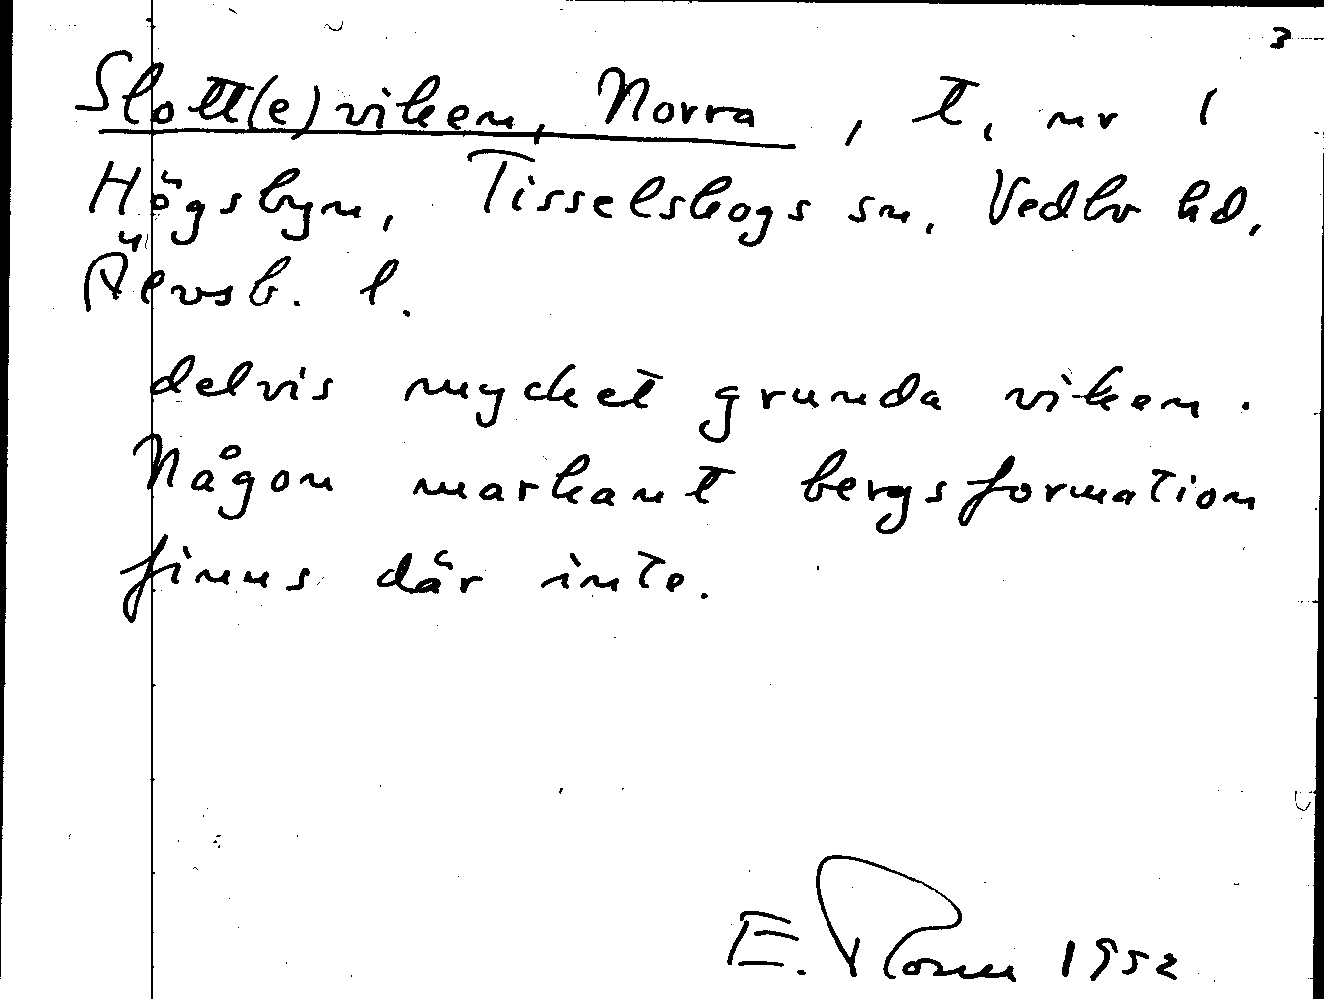 3
Slott(e)viken, Norra, t, nr 1
Högsbyn, Tisselskogs sn, Vedbo hd,
Älvsb. l.
delvis mycket grunda viken.
Någon markant bergsformation
finns där inte.
E. 1952